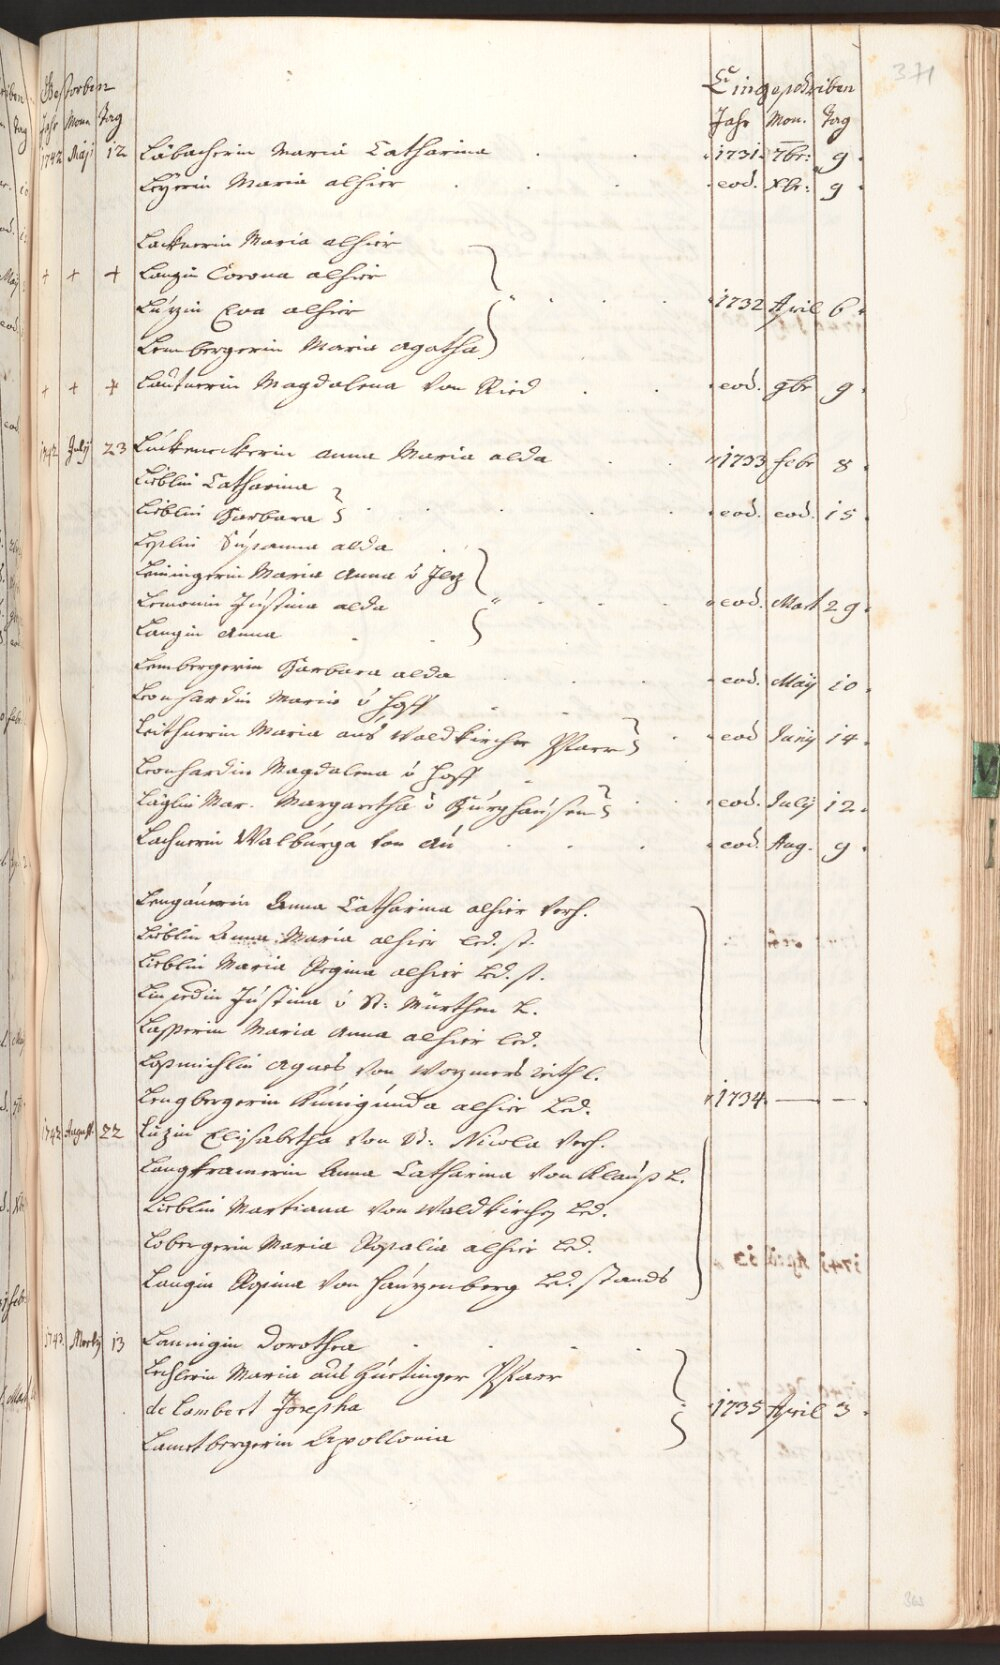 371
Gestorben Eingeschriben
Jahr Mon. Tag Jahr Mon. Tag
1742 Maji 12 Läbacherin Maria Catharina 1731. 7br: 9.
Leyerin Maria alhier eod. Xbr: 9.
Lacknerin Maria alhier
+ + + Langin Corona alhier
Lúzin Eva alhier 1732 April 6.
Lembergerin Maria Agatha
+ + + Lautnerin Magdalena von Ried eod. 9br 9.
1742 Julij 23 Lúckeneckerin Anna Maria alda 1733 febr 8.
Lieblin Catharina
Lieblin Barbara eod. eod. 15.
Súsanna alda
Leiningerin Maria Anna v Ilz
Lemonin Jústina alda eod. Mart 29.
Langin Anna
Lembergerin Barbara alda eod. Maij 10.
Leonhardin Maria v Hoff
Leithnerin Maria aus Waldkircher Pfarr eod Junij 14.
Leonhardin Magdalena v Hoff
Läglin Mar. Margaretha v Búrghaúsen eod. July 12.
Lachnerin Walbúrga von Aú eod. Aug. 9.
Lengaúerin Anna Catharina alhier verh.
Lieblin Anna Maria alhier led. st.
Lieblin Maria Regina alhier led. st.
Jústina v St: L.
Maria Anna alhier led.
Agnes von l.
Lengbergerin Kúnigúnda alhier Led. 1734. — —.
1742 August. 22 Lúzin Elisabetha von St: Nicola verh.
Langkramerin Anna Catharina von Klaúß L.
Lieblin Martiana von Waldkirchen Led.
Lobergerin Maria Rosalia alhier Led.
Langin Rosina von Haúzenberg Led. stands
1743. Martij 13 Lannigin Dorothea
Lechlerin Maria aus Pfarr
de Lambert Josepha 1735 April 3.
Lametbergerin Apollonia